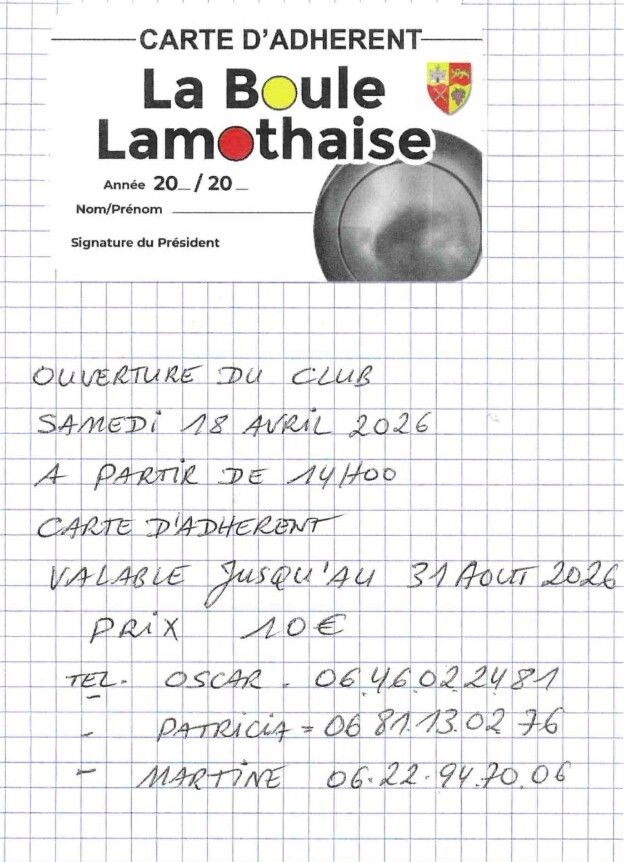 CARTE D'ADHERENT
La Boule
Lamothaise
Année 20__ / 20 __
Nom/Prénom
Signature du Président
OUVERTURE DU CLUB
SAMEDI 18 AVRIL 2026
A PARTIR DE 14H00
CARTE D'ADHERENT
VALABLE JUSQU'AU 31 AOUT 2026
PRIX 10€
TEL. OSCAR . 06.46.02.24 81
- PATRICIA = 06 81.13.02 76
- MARTINE 06.22.94.70.06